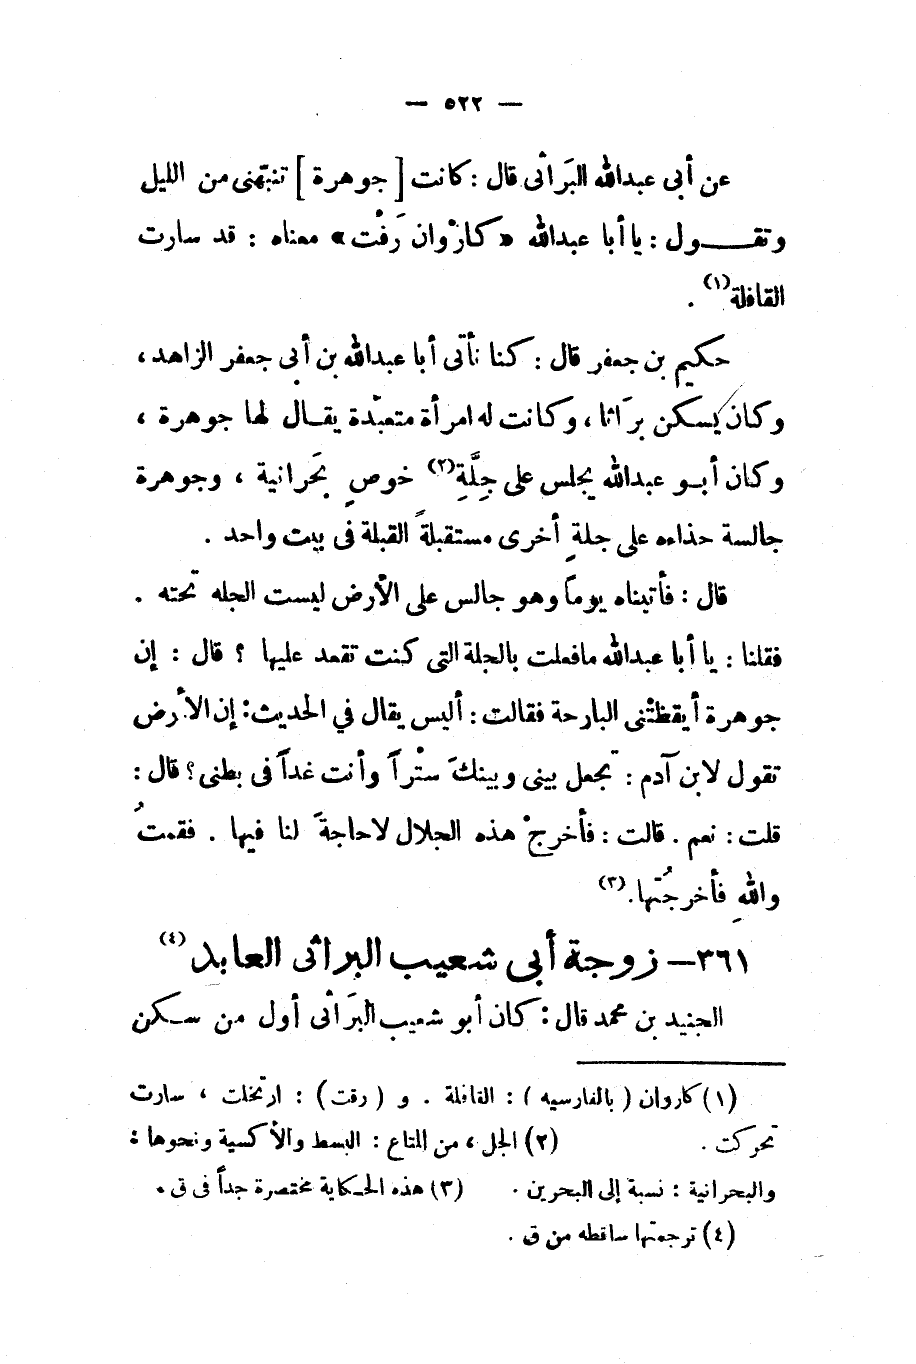 — ٥٢٢ —
عن أبى عبدالله البَراثى قال : كانت [ جوهرة ] تنبّهنى من الليل
وتقـــول : يا أبا عبدالله «كارْوان رَفْت» معناه : قد سارت
القافلة(١) .
حكيم بن جعفر قال : كنا نأتى أبا عبدالله بن أبى جعفر الزاهد ،
وكان يسكن برَاثا ، وكانت له امرأة متعبّدة يقـال لها جوهرة ،
وكان أبـو عبدالله يجلس على جِلَّةِ(٢) خوصٍ بَحرانية ، وجوهرة
جالسة حذاءه على جلةٍ أخرى مستقبلةً القبلة فى بيت واحد .
قال : فأتيناه يوماً وهو جالس على الأرض ليست الجله تحته .
فقلنا : يا أبا عبدالله مافعلت بالجلة التى كنت تقعد عليها ؟ قال : إن
جوهرة أيقظتْنى البارحة فقالت : أليس يقال في الحديث : إن الأرض
تقول لابن آدم : تجعل بينى وبينكَ ستْراً وأنت غداً فى بطنى ؟ قال :
قلت : نعم . قالت : فأخرجْ هذه الجلال لاحاجةَ لنا فيها . فقمتُ
واللهِ فأخرجُتها .(٣)
٣٦١– زوجة أبى شعيب البراثى العابد(٤)
الجنيد بن محمد قال : كان أبو شعيب البَراثى أول من سـكن
(١) كاروان ( بالفارسيه ) : القافلة . و ( رفت ) : ارتحلت ، سارت
تحركت . (٢) الجل ، من المتاع : البسط والأكسية ونحوها :
والبحرانية : نسبة إلى البحرين . (٣) هذه الحكاية مختصرة جداً فى ق .
(٤) ترجمتها ساقطه من ق .